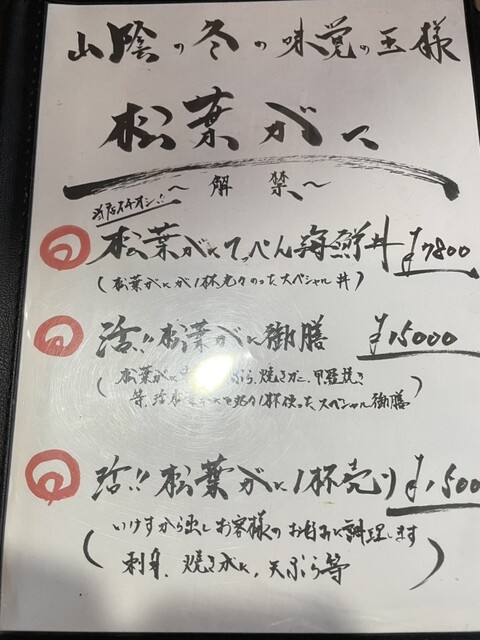 山陰の冬の味覚の王様
松葉がに
〜解禁〜
当店イチオシ!!
松葉がにてっぺん海鮮丼 ¥7800
(松葉がにが1杯丸々のったスペシャル丼)
活!!松葉がに御膳 ¥15000
(松葉がに 焼きがに、甲羅焼き
等、活松葉がにを丸々1杯使ったスペシャル御膳)
活!!松葉がに1杯売り ¥1500
(いけすから出しお客様のお好みに調理します
刺身、焼きがに、天ぷら等)